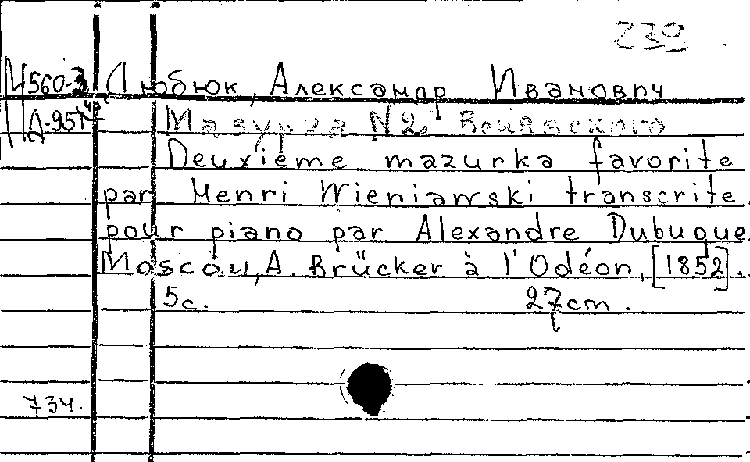 239
М560-3 Дюбюк, Александр Иванович
Д-957 Мазурка №2 Венявского
Deuxième mazurka favorite
par Henri Wieniawski transcrite
pour piano par Alexandre Dubuque
Moscou, A. Brücker à l'Odéon, [1852].
5с. 27cm.
734.